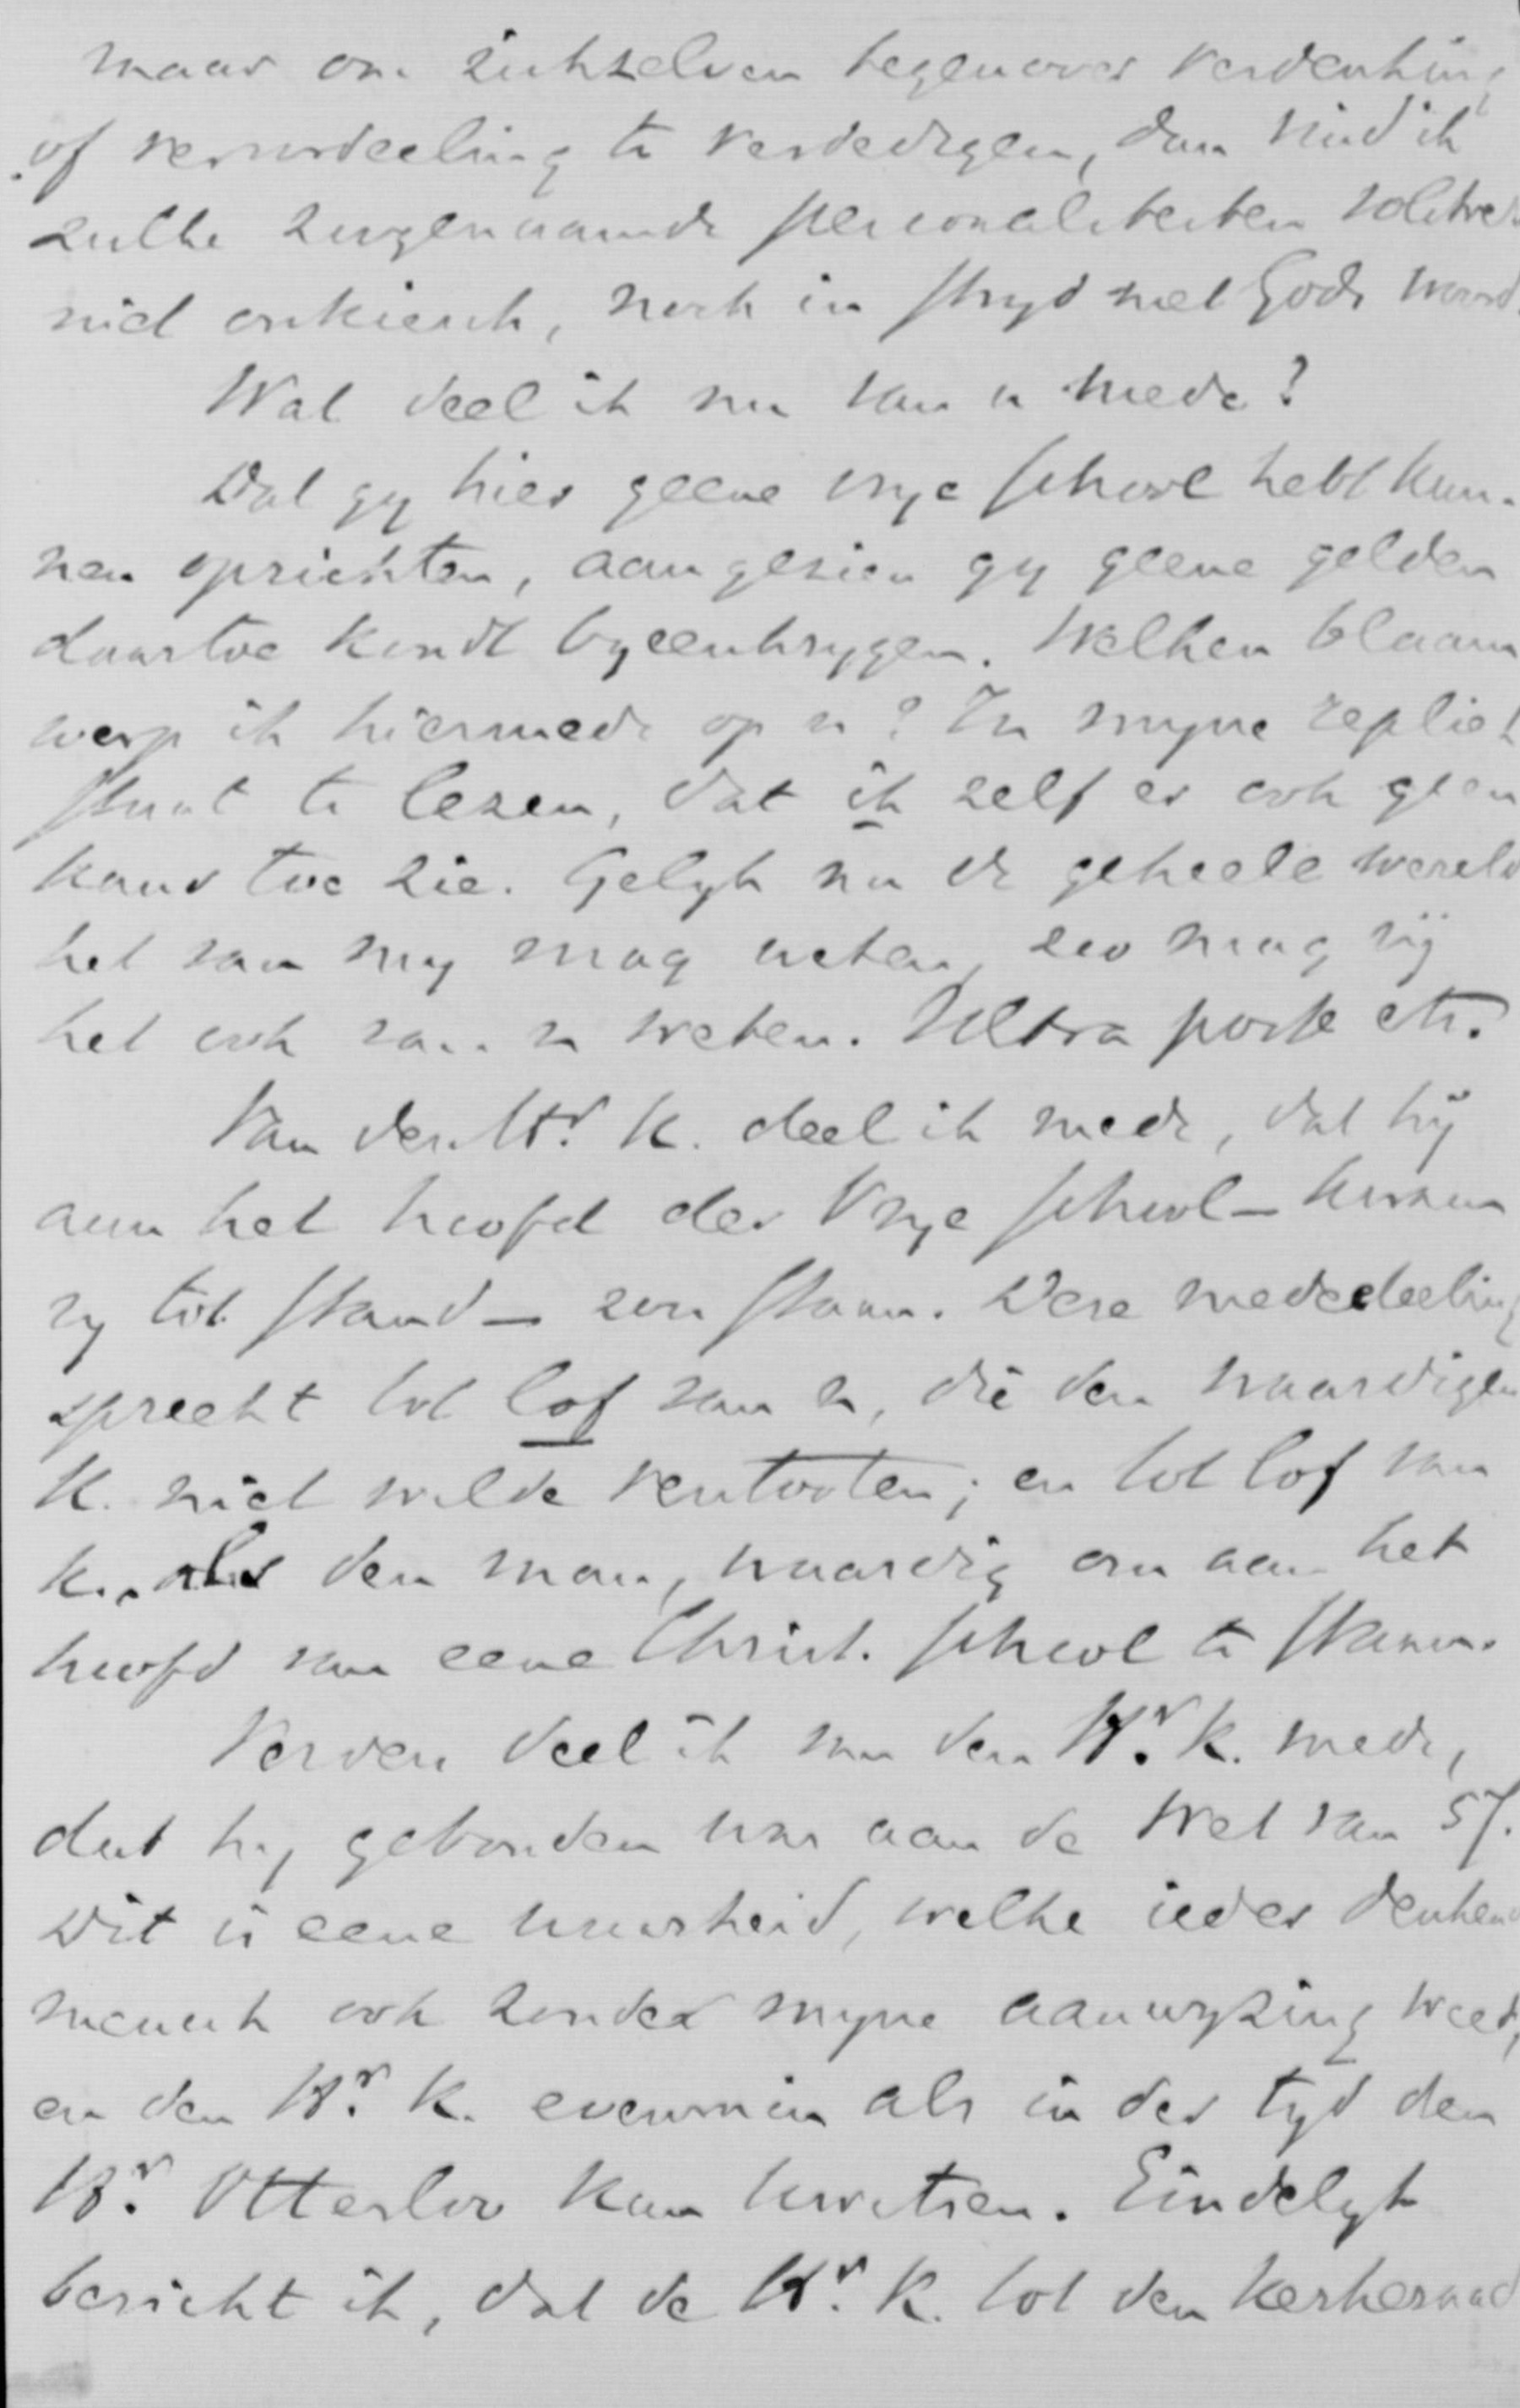 maar om zichzelven tegenover verdenking
of veroordeeling te verdedigen, dan vind ik
zulke zoogenaamde personaliteiten volstrekt
niet onkiesch, noch in stryd met Gods woord.
Wat deel ik nu van u mede?
Dat gy hier geene vrye school hebt kun-
nen oprichten, aangezien gy geene gelden
daartoe kondt byeenkrygen. Welken blaam
werp ik hiermede op u? In myne repliek
staat te lezen, dat ik zelf er ook geen
kans toe zie. Gelyk nu de geheele wereld
het van my mag weten, zoo mag zij
het ook van u weten. Ultra posse etc.
Van den Hr. K. deel ik mede, dat hij
aan het hoofd der Vrye school – kwam
zy tot stand – zou staan. Deze mededeeling
spreekt tot lof van u, die den waardigen
K. niet wilde verstooten; en tot lof van
K., als den man, waardig om aan het
hoofd van eene Christ. school te staan.
Verder deel ik van den Hr. K. mede,
dat hy gebonden was aan de Wet van 57.
Dit is eene waarheid, welke ieder denkend
mensch ook zonder myne aanwyzing weet,
en den Hr. K. evenmin als in der tyd den
Hr. Otterloo kan kwetsen. Eindelyk
bericht ik, dat de Hr. K. tot den kerkeraad